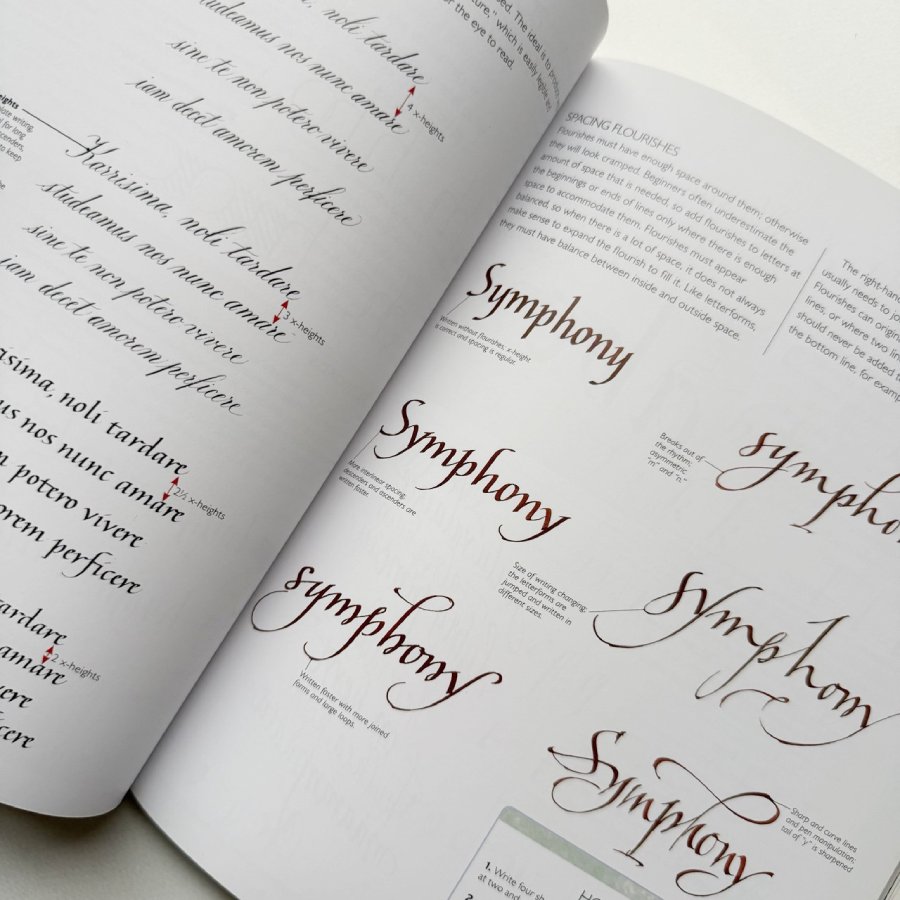 sed. The ideal is to produce
ture," which is easily legible as
or the eye to read.
, noli tardare
studeamus nos nunc amare
sine te non potero vivere
iam decet amorem perficere
4 x-heights
eights
late writing,
l for long
scenders,
to keep
Karrisima, noli tardare
studeamus nos nunc amare
sine te non potero vivere
iam decet amorem perficere
3 x-heights
asima, noli tardare
us nos nunc amare
potero vivere
orem perficere
2½ x-heights
tardare
amare
vere
cere
2 x-heights
SPACING FLOURISHES
Flourishes must have enough space around them; otherwise
they will look cramped. Beginners often underestimate the
amount of space that is needed, so add flourishes to letters at
the beginnings or ends of lines only where there is enough
space to accommodate them. Flourishes must appear
balanced, so when there is a lot of space, it does not always
make sense to expand the flourish to fill it. Like letterforms,
they must have balance between inside and outside space.
The right-hand
usually needs to jo
Flourishes can origin
lines, or where two lin
should never be added t
the bottom line, for examp
Symphony
Written without flourishes, x-height
is correct and spacing is regular.
Symphony
More interlinear spacing,
descenders and ascenders are
written faster.
symphony
Written faster with more joined
forms and large loops.
Breaks out of
the rhythm;
asymmetric
"m" and "n."
sympho
Size of writing changing;
the letterforms are
jumped and written in
different sizes.
symphony
Symphony
Sharp and curve lines
and pen manipulation;
tail of "y" is sharpened
HO
1. Write four sh
at two and
2.